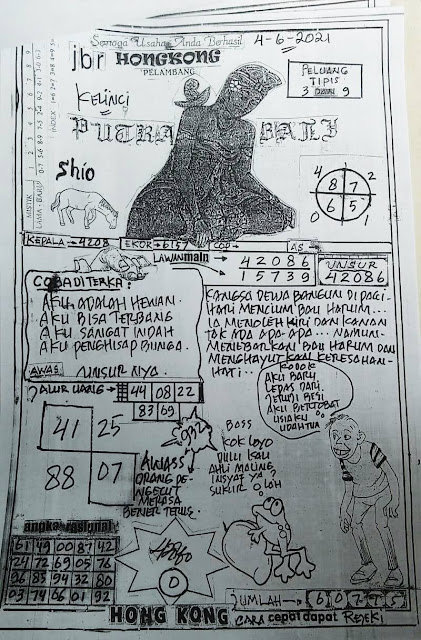 Semoga Usaha Anda Berhasil
4-6-2021
jbr HONGKONG
PELAMBANG
KELINCI
PELUANG
TIPIS
3 9
PUTRA BALI
Shio
8 7
6 5
4 2
0 1
KEPALA → 4208
EKOR → 6157
COP →
AS
LAWAN main
4 2 0 8 6
1 5 7 3 9
UNSUR
42086
COBA DITERKA:
AKU ADALAH HEWAN.
AKU BISA TERBANG
AKU SANGAT INDAH
AKU PENGHISAP BUNGA.
AWAS: UNSUR NYA.
KANGSA DEWA BANGUN DI PAGI-
HARI MENCIUM BAU HARUM...
IA MENOLEH KIRI DAN KANAN
TAK ADA APA-APA... NAMUN...
MENEBARKAN BAU HARUM DAN
MENGHAYUTKAN KERESAHAN-
HATI...
JALUR UANG → 44 08 22
83 69
41 25
88 07
AWASS
ORANG PE-
NGECUT
MERASA
BENER TERUS.
BOSS
KOK LOYO
DULU KAU
AHLI MALING
INSYAF YA?
SUKUR LAH
KODOK
AKU BARU
LEPAS DARI.
JERUJI BESI
AKU BERTOBAT
USIAKU
UDAH TUA
angka rasional
61 49 00 87 42
24 72 69 05 76
96 83 94 32 80
03 74 66 01 92
0
JUMLAH → 6 0 7
HONG KONG CARA cepat dapat REJEKI